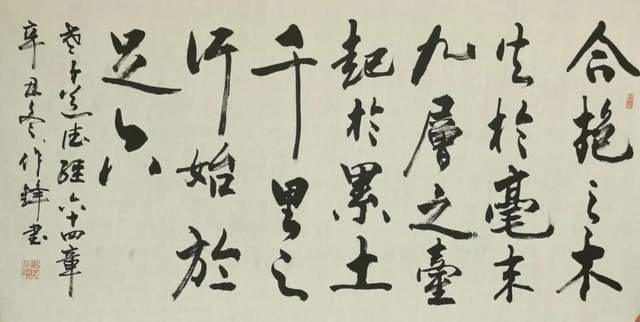 合抱之木
生於毫末
九層之臺
起於累土
千里之
行始於
足下
老子道德經六十四章
辛丑冬作鋒書